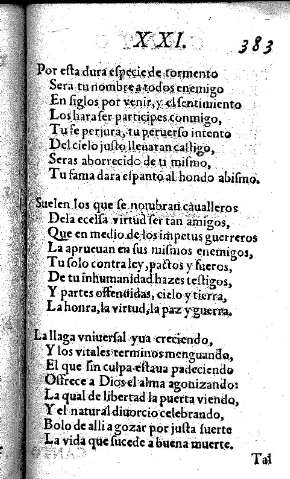 XXI.
383
Por esta dura especie de tormento
Sera tu nombre a todos enemigo
En siglos por venir, y el sentimiento
Los hara ser participes conmigo,
Tu fe perjura, tu peruerso intento
Del cielo justo lleuaran castigo,
Seras aborrecido de ti mismo,
Tu fama dara espanto al hondo abismo.
Suelen los que se nombran caualleros
Dela ecelsa virtud ser tan amigos,
Que en medio de los impetus guerreros
La aprueuan en sus mismos enemigos,
Tu solo contra ley, pactos y fueros,
De tu inhumanidad hazes testigos,
Y partes offendidas, cielo y tierra,
La honra, la virtud, la paz y guerra.
La llaga vniuersal yua creciendo,
Y los vitales terminos menguando,
El que sin culpa estaua padeciendo
Offrece a Dios el alma agonizando:
La qual de libertad la puerta viendo,
Y el natural diuorcio celebrando,
Bolo de alli a gozar por justa suerte
La vida que sucede a buena muerte.
Tal